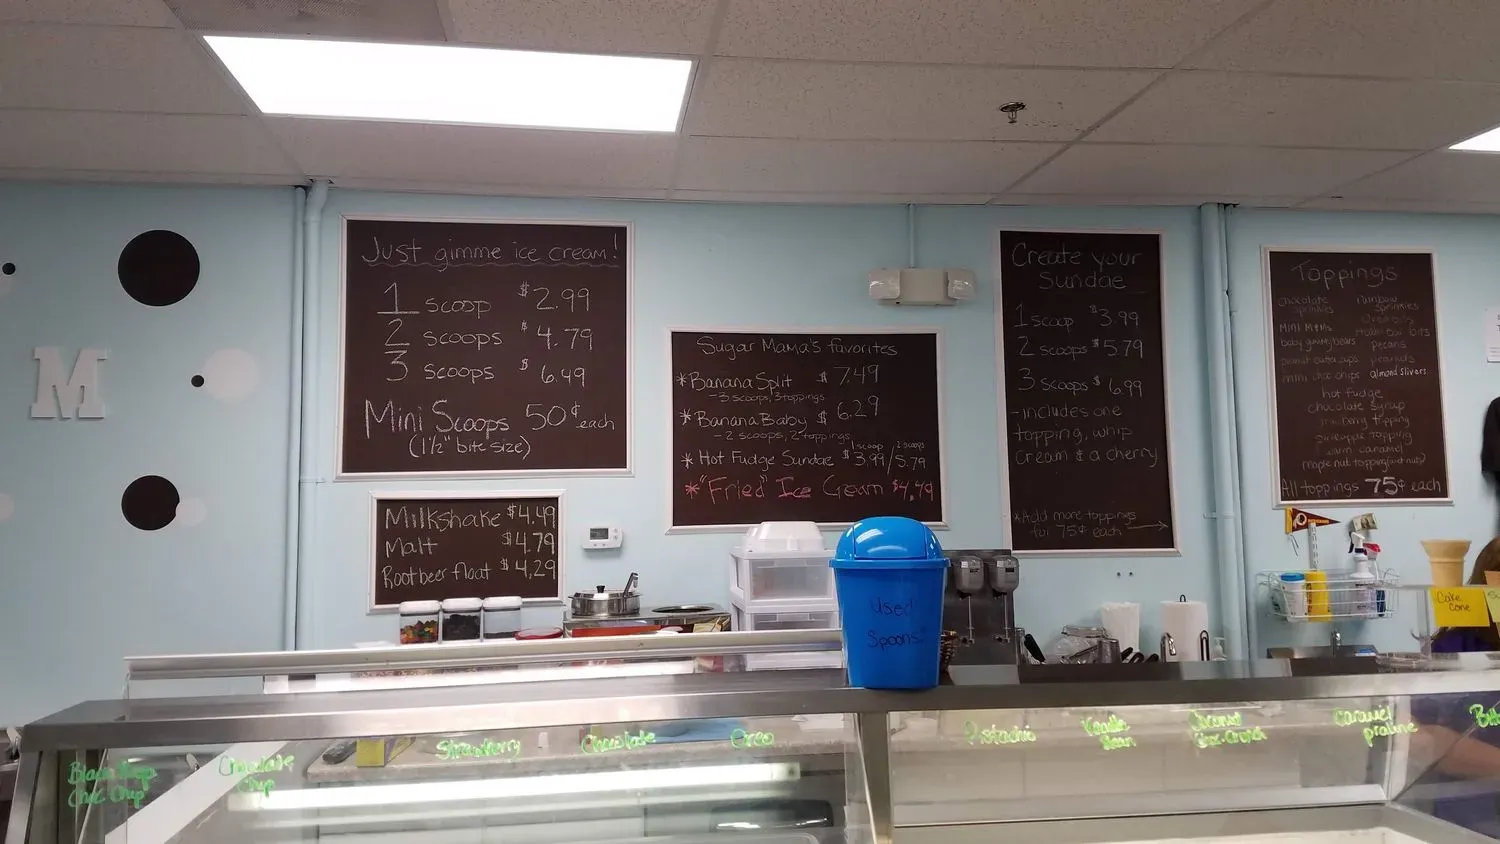 M
Just gimme ice cream!
1 scoop $2.99
2 scoops $4.79
3 scoops $6.49
Mini Scoops 50¢ each
(1½" bite size)
Milkshake $4.49
Malt $4.79
Rootbeer float $4.29
Sugar Mama's favorites
*Banana Split $7.49
-3 scoops, 3 toppings
*Banana Baby $6.29
-2 scoops, 2 toppings
1 scoop 2 scoops
*Hot Fudge Sundae $3.99/5.79
*"Fried" Ice Cream $4.49
Create your
Sundae
1 scoop $3.99
2 scoops $5.79
3 scoops $6.99
-includes one
topping, whip
cream & a cherry
*Add more toppings
for 75¢ each
Toppings
chocolate sprinkles
rainbow sprinkles
mini m&ms
baby gummy bears
pecans
peanut butter cups
peanuts
mini choc chips
almond slivers
hot fudge
chocolate syrup
pineapple topping
warm caramel
All toppings 75¢ each
Used
Spoons
Cake
Cone
Black
Choc Chip
Chocolate
Chip
Strawberry
Chocolate
Oreo
Pistachio
Vanilla
Bean
Coconut
Choc-Crunch
Caramel
praline